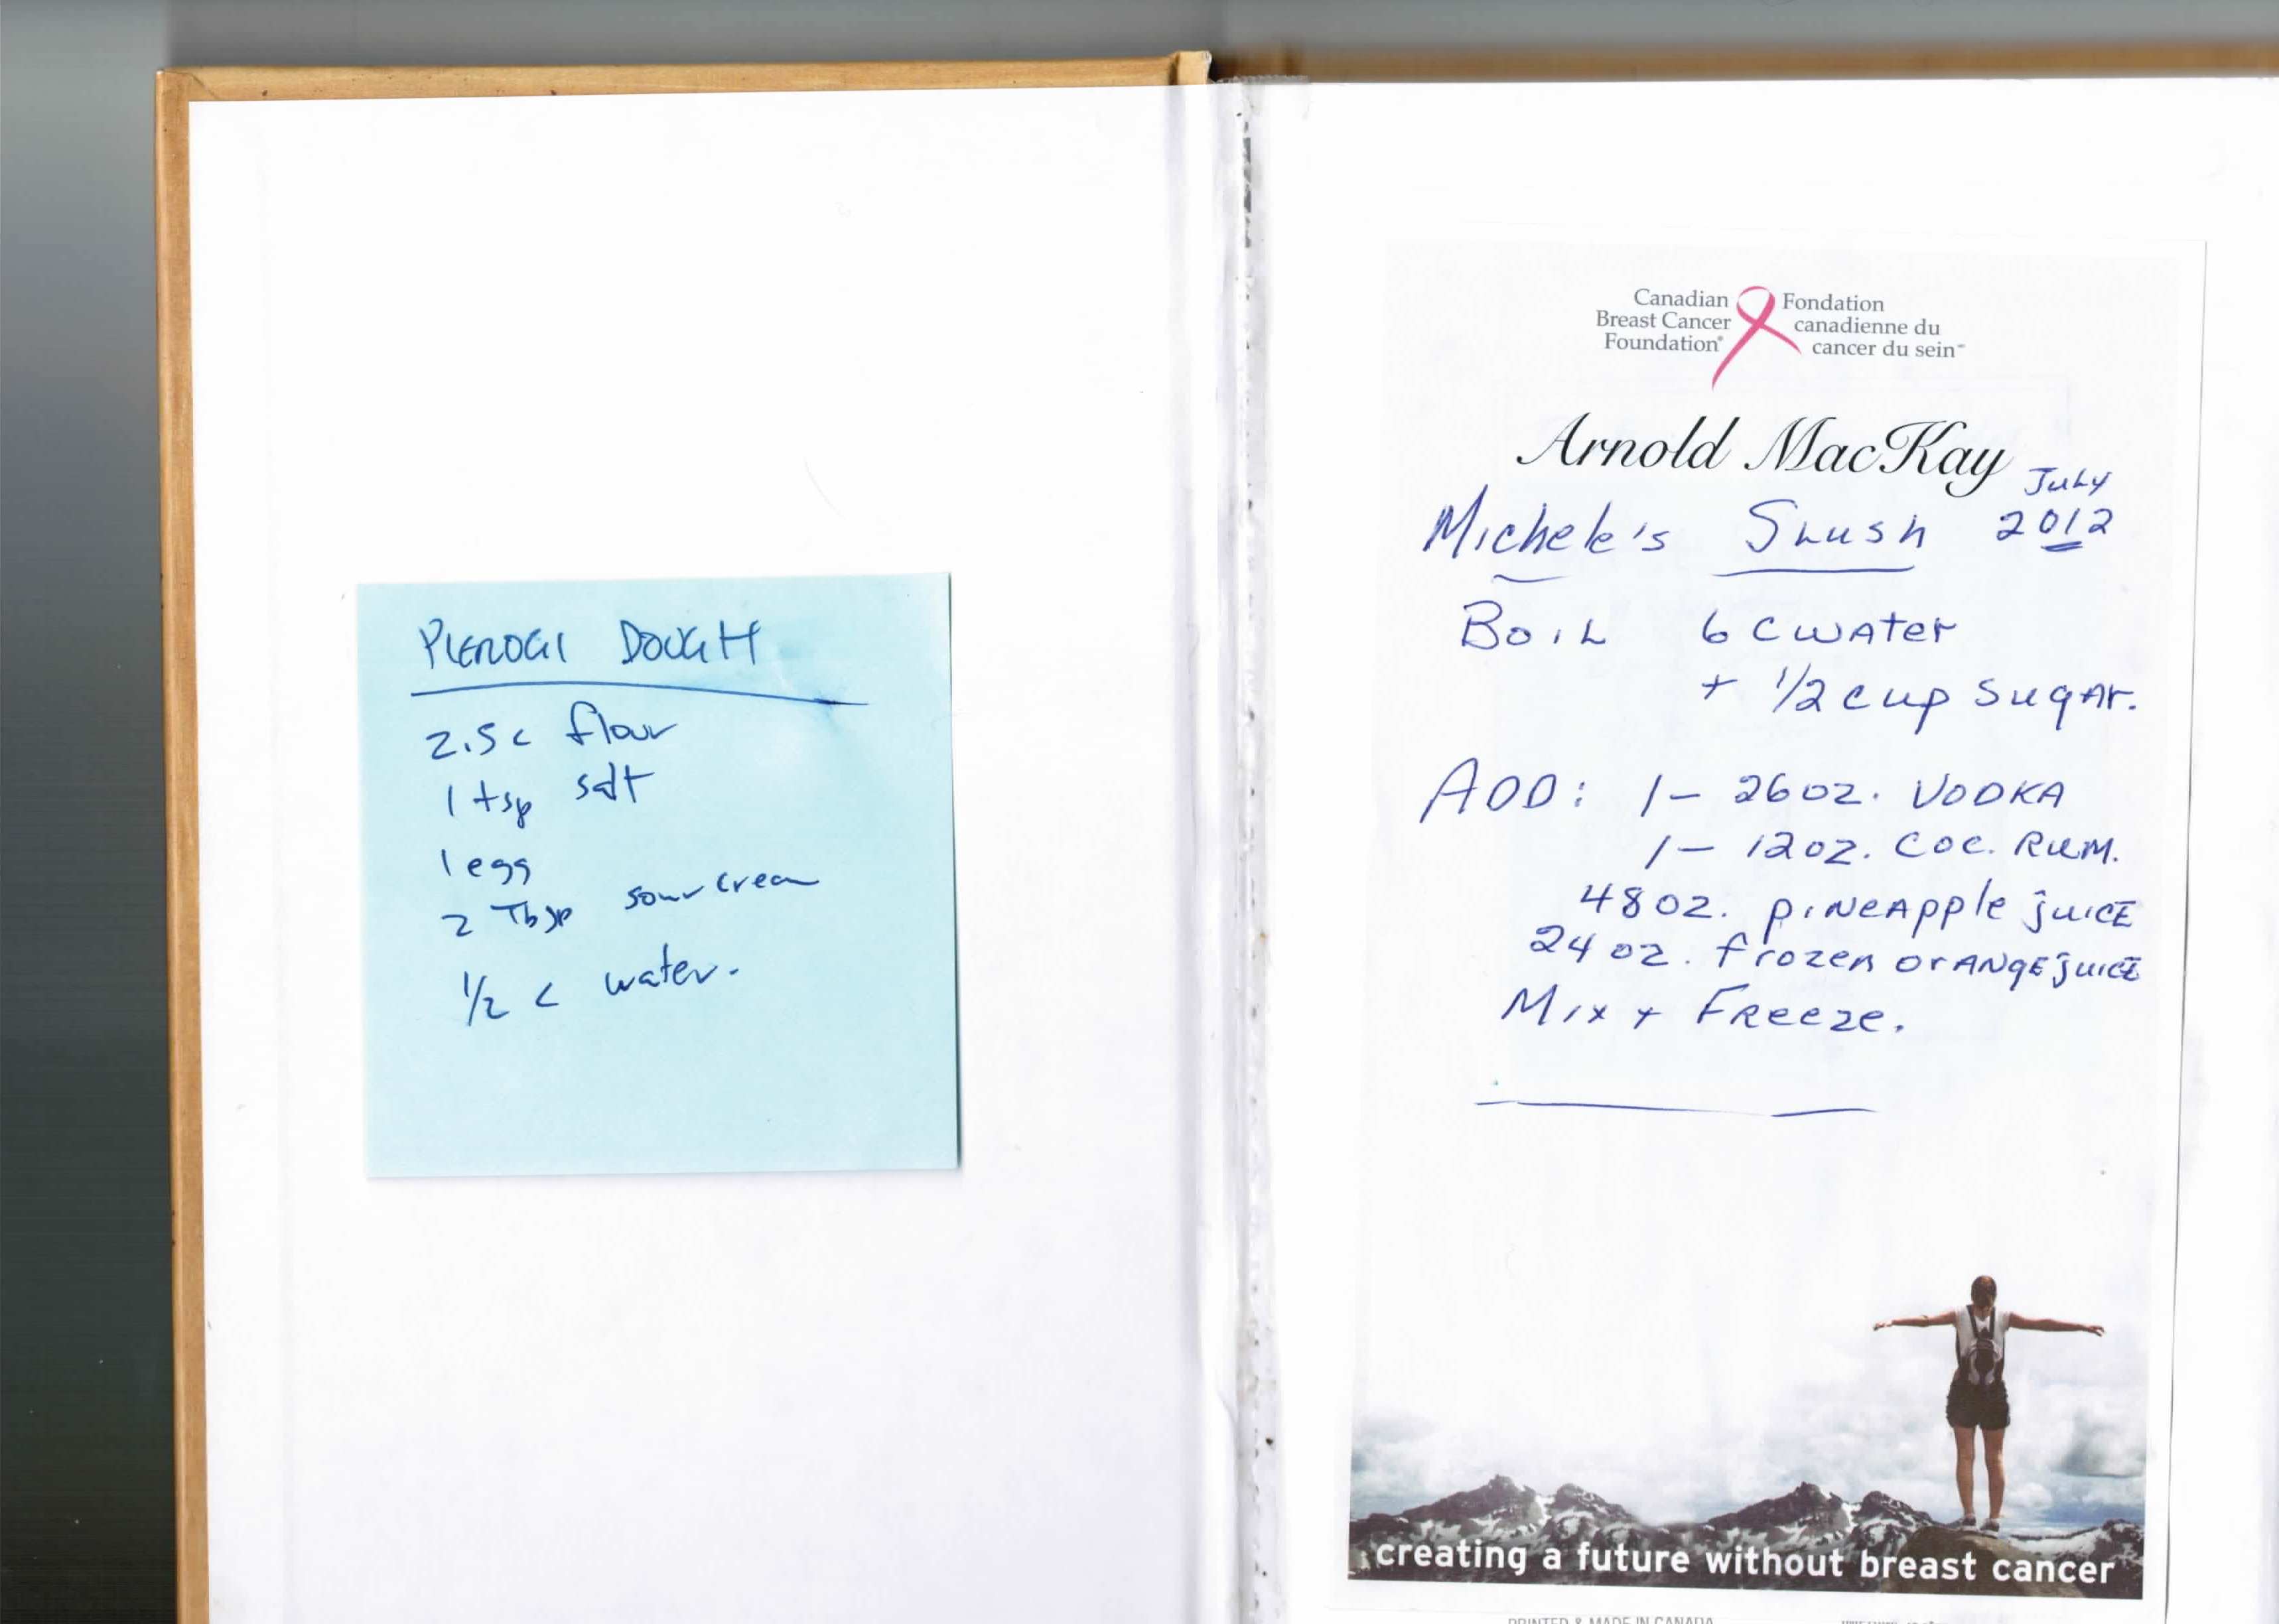 PIEROGI DOUGH
2.5 c flour
1 tsp salt
1 egg
2 Tbsp sour cream
1/2 c water.
Canadian
Breast Cancer
Foundation
Fondation
canadienne du
cancer du sein
Arnold MacKay
July
Michele's Slush 2012
Boil 6 c water
+ 1/2 cup sugar.
ADD: 1 - 26 oz. VODKA
1 - 12 oz. COC. RUM.
48 oz. pineapple juice
24 oz. frozen orange juice
Mix + Freeze.
creating a future without breast cancer
PRINTED & MADE IN CANADA